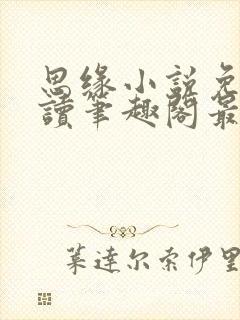 思缘小说免
读笔趣阁最
莱达尔索伊里